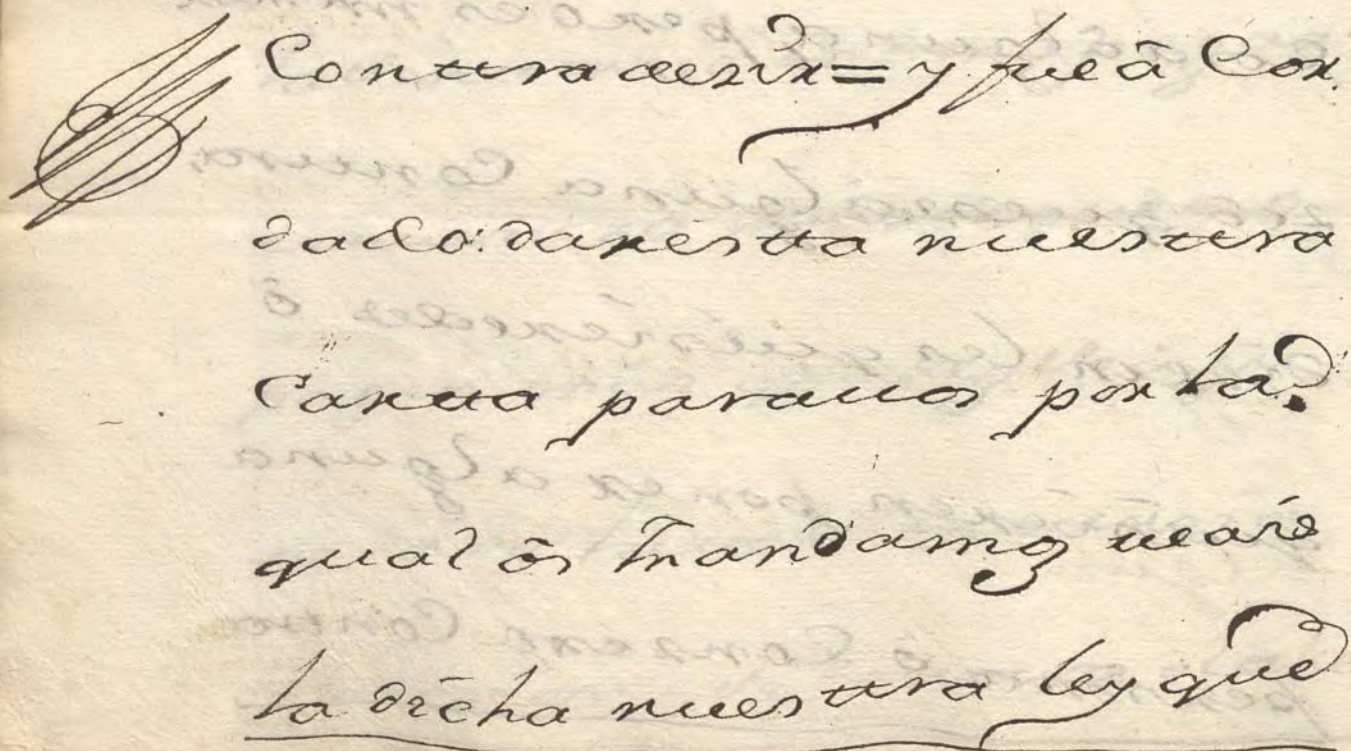 Contradezir = y fue acor
dado: dar esta nuestra
Carta para uos por la
qual os mandamos ueais
la dicha nuestra ley que